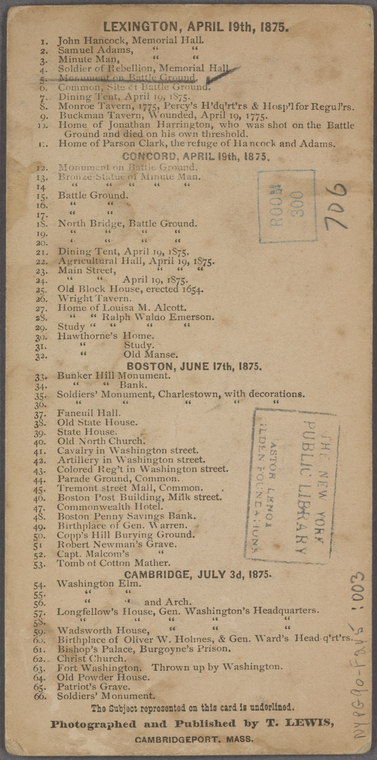 LEXINGTON, APRIL 19th, 1875.
1. John Hancock, Memorial Hall.
2. Samuel Adams, " "
3. Minute Man, " "
4. Soldier of Rebellion, Memorial Hall.
5. Monument on Battle Ground.
6. Common, Site of Battle Ground.
7. Dining Tent, April 19, 1875.
8. Monroe Tavern, 1775, Percy's H'dq'rt'rs & Hosp'l for Regul'rs.
9. Buckman Tavern, Wounded, April 19, 1775.
10. Home of Jonathan Harrington, who was shot on the Battle
Ground and died on his own threshold.
11. Home of Parson Clark, the refuge of Hancock and Adams.
CONCORD, APRIL 19th, 1875.
12. Monument on Battle Ground.
13. Bronze Statue of Minute Man.
14 " " " " "
15. Battle Ground.
16. " "
17. " "
18. North Bridge, Battle Ground.
19. " " " "
20. " " " "
21. Dining Tent, April 19, 1875.
22. Agricultural Hall, April 19, 1875.
23. Main Street, " " "
24. " " April 19, 1875.
25. Old Block House, erected 1654.
26. Wright Tavern.
27. Home of Louisa M. Alcott.
28. " " Ralph Waldo Emerson.
29. Study " " " "
30. Hawthorne's Home.
31. " Study.
32. " Old Manse.
BOSTON, JUNE 17th, 1875.
33. Bunker Hill Monument.
34. " " Bank.
35. Soldiers' Monument, Charlestown, with decorations.
36. " " " " "
37. Faneuil Hall.
38. Old State House.
39. State House.
40. Old North Church.
41. Cavalry in Washington street.
42. Artillery in Washington street.
43. Colored Reg't in Washington street.
44. Parade Ground, Common.
45. Tremont street Mall, Common.
46. Boston Post Building, Milk street.
47. Commonwealth Hotel.
48. Boston Penny Savings Bank.
49. Birthplace of Gen. Warren.
50. Copp's Hill Burying Ground.
51 Robert Newman's Grave.
52. Capt. Malcom's "
53. Tomb of Cotton Mather.
CAMBRIDGE, JULY 3d, 1875.
54. Washington Elm.
55. " "
56. " " and Arch.
57. Longfellow's House, Gen. Washington's Headquarters.
58. " " " " "
59. Wadsworth House, " " "
60. Birthplace of Oliver W. Holmes, & Gen. Ward's Head q'rt'rs.
61. Bishop's Palace, Burgoyne's Prison.
62. Christ Church.
63. Fort Washington. Thrown up by Washington.
64. Old Powder House.
65. Patriot's Grave.
66. Soldiers' Monument.
The Subject represented on this card is underlined.
Photographed and Published by T. LEWIS,
CAMBRIDGEPORT, MASS.
ROOM
300
706
THE NEW YORK
PUBLIC LIBRARY
ASTOR LENOX
TILDEN FOUNDATIONS